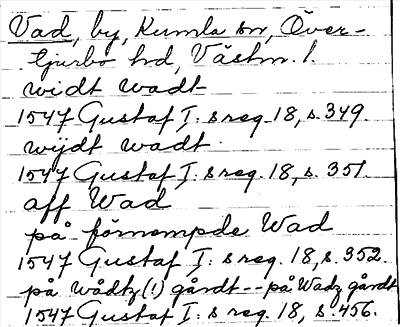 Vad, by, Kumla sn, Över-
tjurbo hd, Västm. l.
widt wadt
1547 Gustaf I: s reg. 18, s. 349.
wijdt wadt
1547 Gustaf I: s reg. 18, s. 351.
aff Wad
på förnompde Wad
1547 Gustaf I: s reg. 18, s. 352.
på Wådtz(!) gårdt -- på Wadz gårdt
1547 Gustaf I: s reg. 18, s. 456.